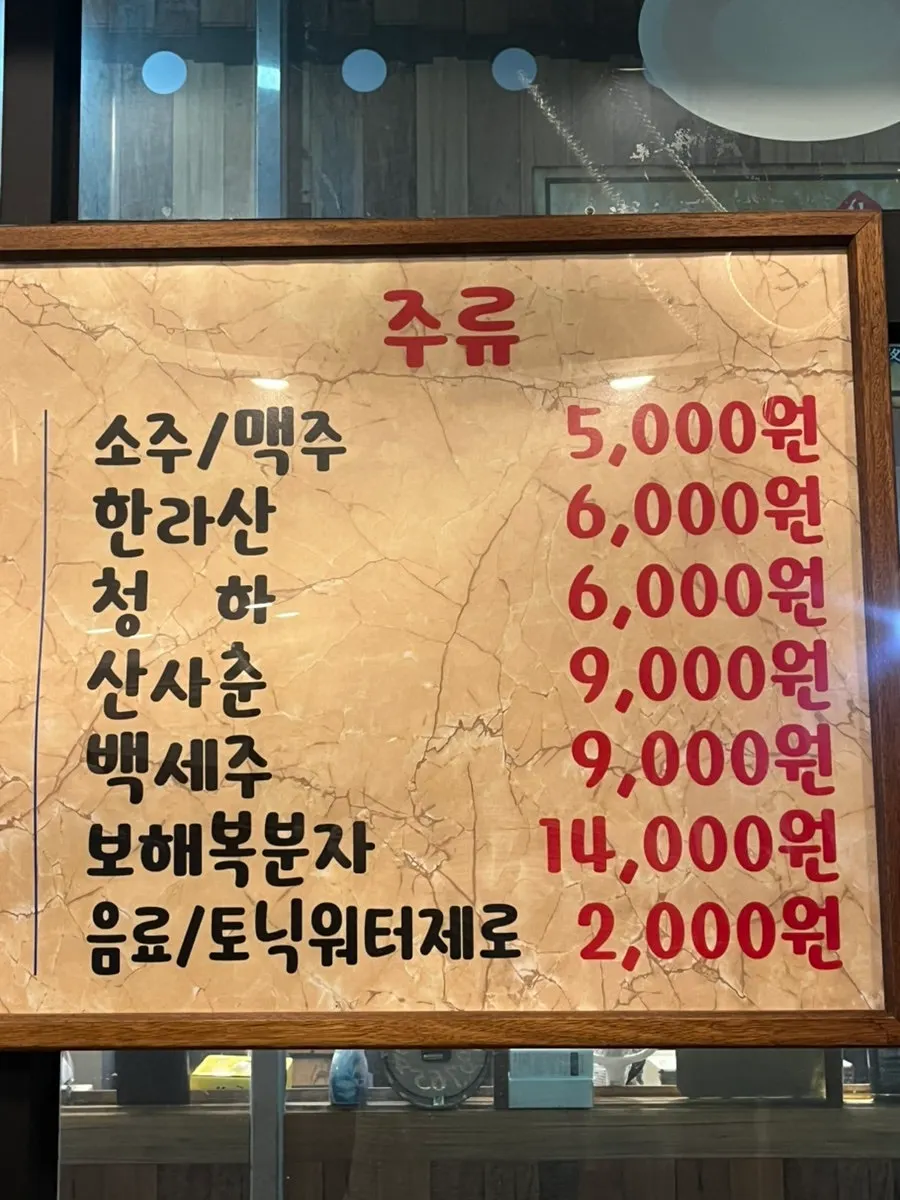 주류
소주/맥주 5,000원
한라산 6,000원
청 하 6,000원
산사춘 9,000원
백세주 9,000원
보해복분자 14,000원
음료/토닉워터제로 2,000원